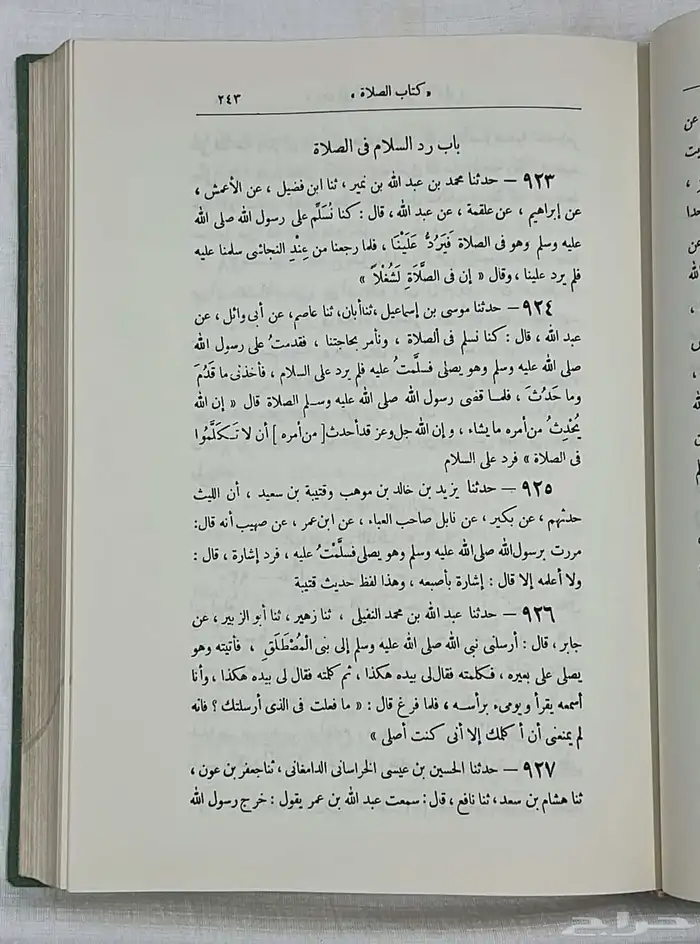 « كتاب الصلاة » ٢٤٣
باب رد السلام فى الصلاة
٩٢٣ – حدثنا محمد بن عبد الله بن نمير ، ثنا ابن فضيل ، عن الأعمش ،
عن إبراهيم ، عن علقمة ، عن عبد الله ، قال : كنا نُسَلِّم على رسول الله صلى الله
عليه وسلم وهو فى الصلاة فَيَرُدُّ عَلَيْنَا ، فلما رجعنا من عِنْدِ النجاشى سلمنا عليه
فلم يرد علينا ، وقال « إن فى الصَّلَاةِ لَشُغْلاً »
٩٢٤ – حدثنا موسى بن إسماعيل ، ثنا أبان ، ثنا عاصم ، عن أبى وائل ، عن
عبد الله ، قال : كنا نسلم فى الصلاة ، ونأمر بحاجتنا ، فقدمتُ على رسول الله
صلى الله عليه وسلم وهو يصلى فسلَّمتُ عليه فلم يرد على السلام ، فأخذنى ما قَدُمَ
وما حَدُثَ ، فلمـا قضى رسول الله صلى الله عليه وسـلم الصلاة قال « إن الله
يُحْدِثُ من أمره ما يشاء ، وإن الله جل وعز قد أحدث [ من أمره ] أن لا تَـكَلَّمُوا
فى الصلاة » فرد على السلام
٩٢٥ – حدثنا يزيد بن خالد بن موهب وقتيبة بن سعيد ، أن الليث
حدثهم ، عن بكير ، عن نابل صاحب العباء ، عن ابن عمر ، عن صهيب أنه قال :
مررت برسول الله صلى الله عليه وسلم وهو يصلى فسلَّمْتُ عليه ، فرد إشارة ، قال :
ولا أعلمه إلا قال : إشارة بأصبعه ، وهذا لفظ حديث قتيبة
٩٢٦ – حدثنا عبد الله بن محمد النفيلى ، ثنا زهير ، ثنا أبو الزبير ، عن
جابر ، قال : أرسلنى نبى الله صلى الله عليه وسلم إلى بنى الْمُصْطَلَقِ ، فأتيته وهو
يصلى على بعيره ، فـكلمته فقال لى بيده هكذا ، ثم كلمته فقال لى بيده هكذا ، وأنا
أسمعه يقرأ ويومىء برأسـه ، فلما فرغ قال : « ما فعلت فى الذى أرسلتك ؟ فانه
لم يمنعنى أن أكلمك إلا أنى كنت أصلى »
٩٢٧ – حدثنا الحسين بن عيسى الخراسانى الدامغانى ، ثنا جعفر بن عون ،
ثنا هشام بن سعد ، ثنا نافع ، قال : سمعت عبد الله بن عمر يقول : خرج رسول الله
حراج